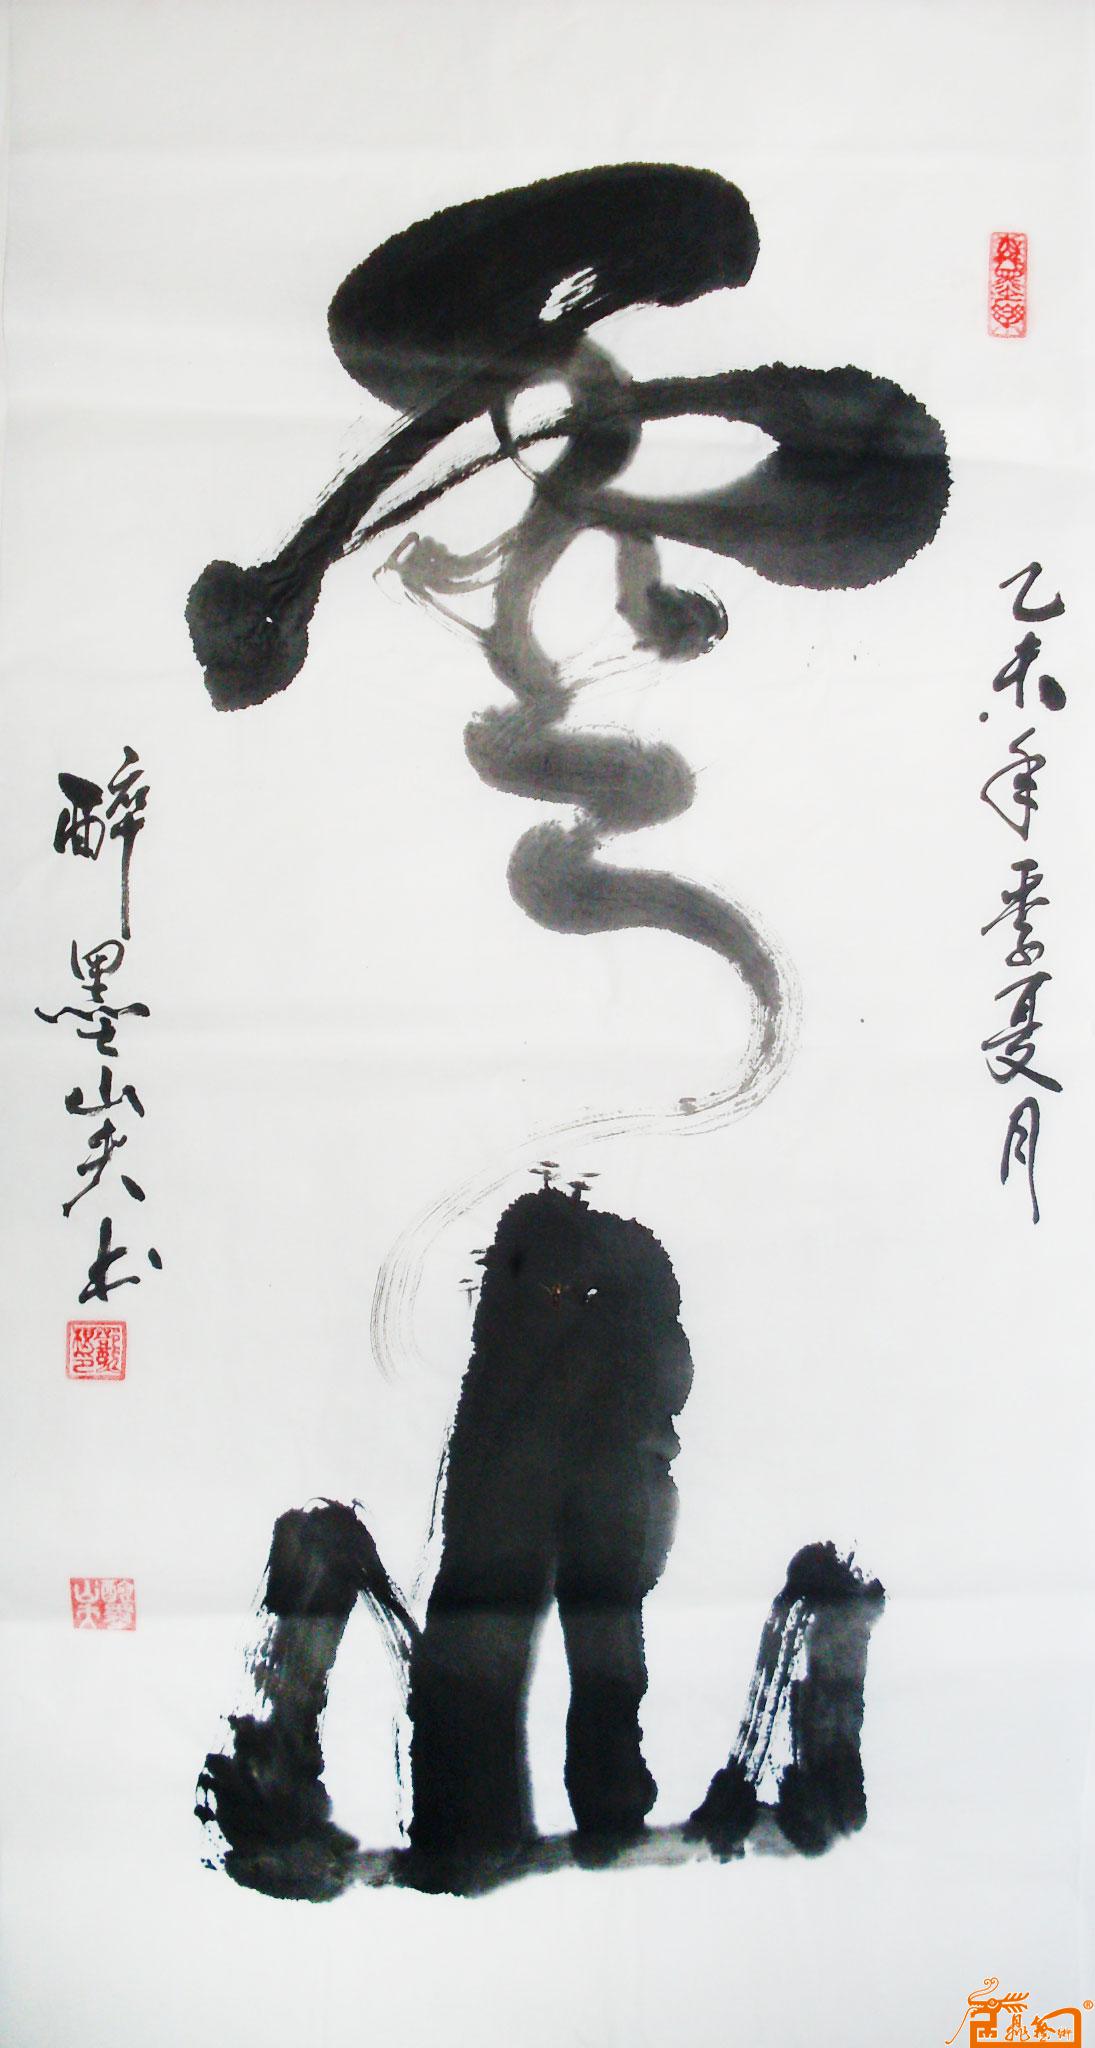 雲山
乙未年季夏月
醉墨山夫书